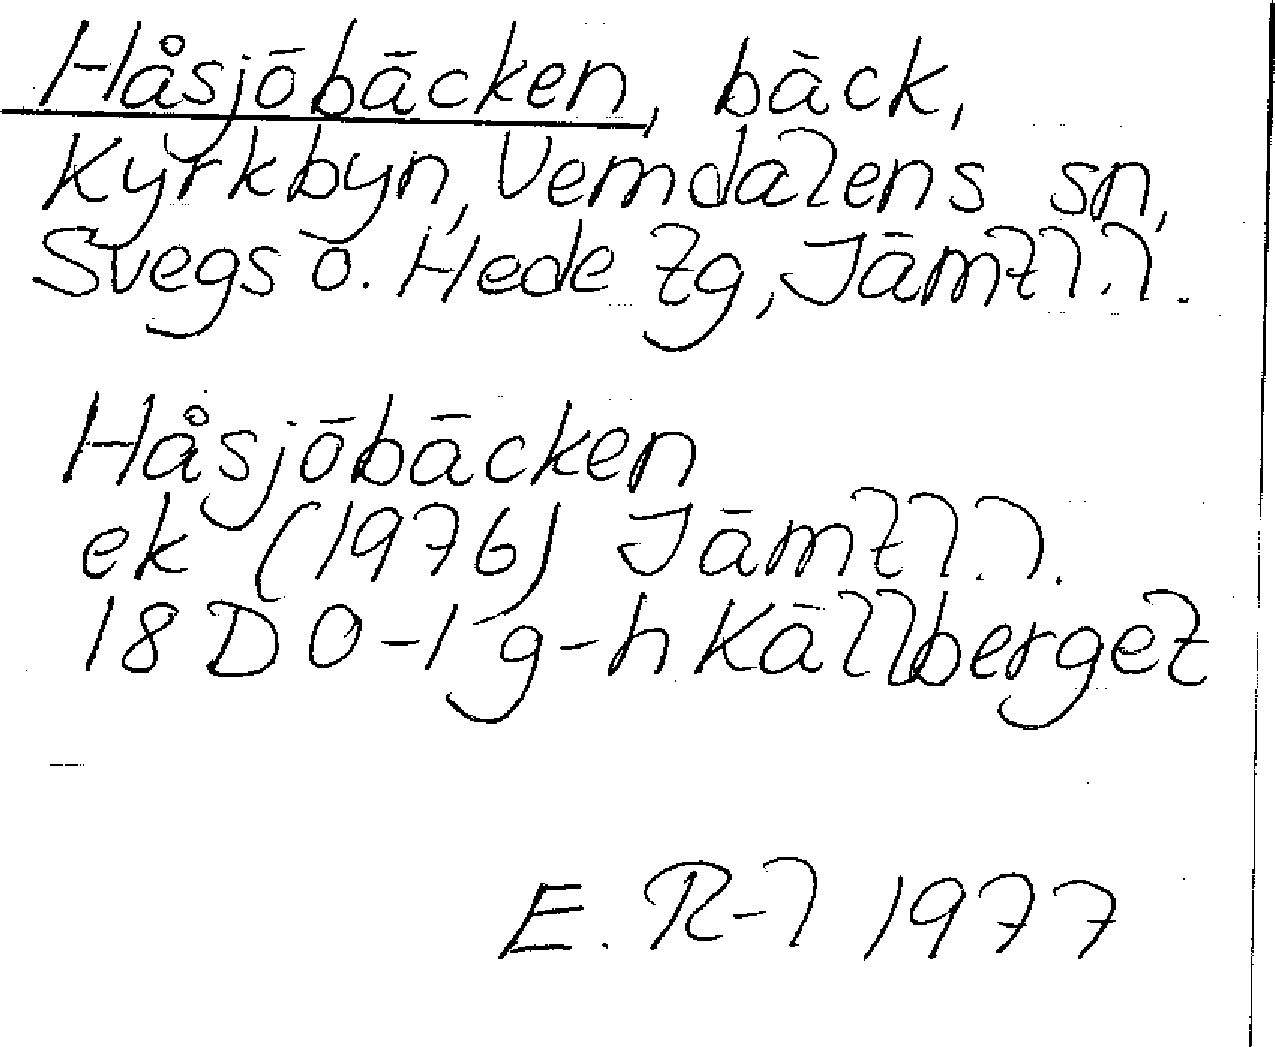 Håsjöbäcken, bäck,
Kyrkbyn, Vemdalens sn,
Svegs o. Hede tg, Jämtl.l.
Håsjöbäcken
ek (1976) Jämtl.l.
18D 0-1 g-h Källberget
E. R-l 1977